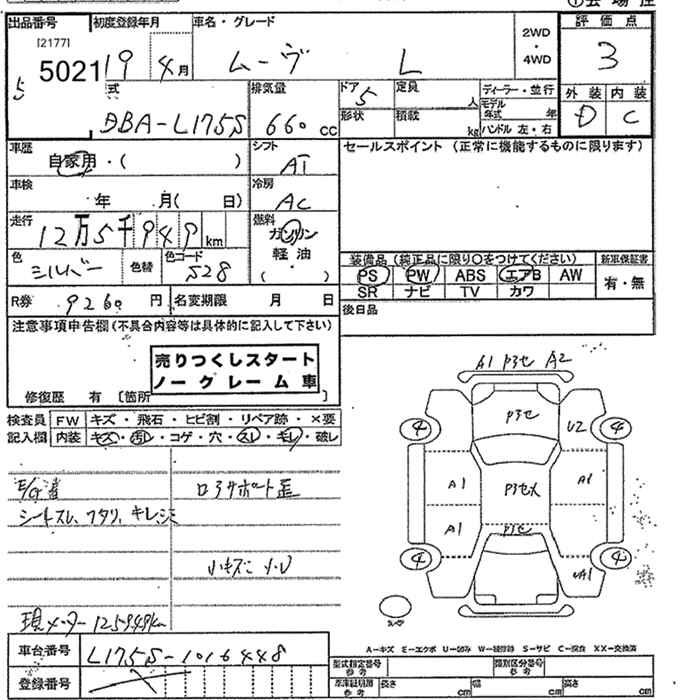 ① 会場
出品番号
[2177]
5021
初度登録年月
19 4月
車名・グレード
ムーヴ L
2WD
・
4WD
評価点
3
外装 内装
D C
式
DBA-L175S
排気量
660 cc
ドア
5
形状
定員
人
積載
kg
ディーラー・並行
モデル
年式 年
ハンドル 左・右
車歴
自家用・( )
シフト
AT
車検
年 月( 日)
冷房
AC
走行
12万5千949 km
燃料
ガソリン
軽油
( )
色
シルバー
色替
色コード
S28
R券 9260 円
名変期限 月 日
セールスポイント (正常に機能するものに限ります)
装備品 (純正品に限り○をつけてください)
PS PW ABS エアB AW
SR ナビ TV カワ
新車保証書
有・無
後日品
注意事項申告欄(不具合内容等は具体的に記入して下さい)
売りつくしスタート
ノークレーム車
修復歴 有 [箇所
検査員 FW キズ・飛石・ヒビ割・リペア跡・×要
記入欄 内装 キズ・汚れ・コゲ・穴・スレ・キレ・破レ
シートスレ、フタリ、キレ、シミ
ロアサポート歪
小キズ
現メーター 125949km
A1 P3セ A2
P3セ
4 4
U2
A1 A1
A1
4 4
車台番号
L175S-1016448
登録番号
A-キズ E-エクボ U-凹み W-補修跡 S-サビ C-腐食 XX-交換済
型式指定番号
参考
類別区分番号
参考
車庫証明用
参考
長さ cm
幅 cm
高さ cm